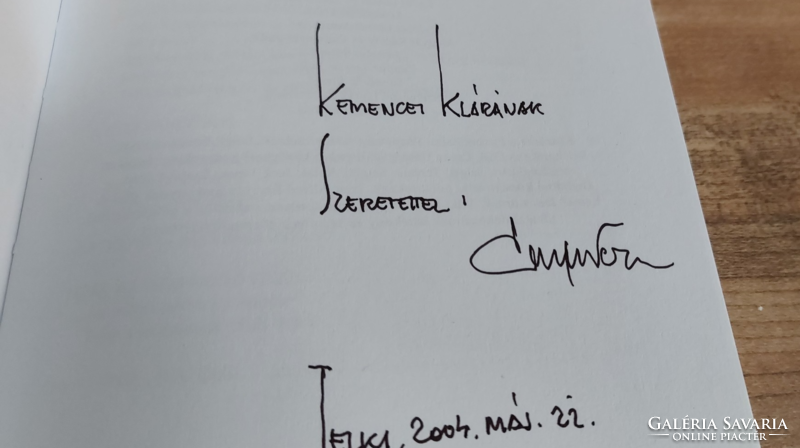 Kemencei Klárának
Szeretettel :
Telki, 2004. máj. 22.
GALÉRIA SAVARIA
ONLINE PIACTÉR